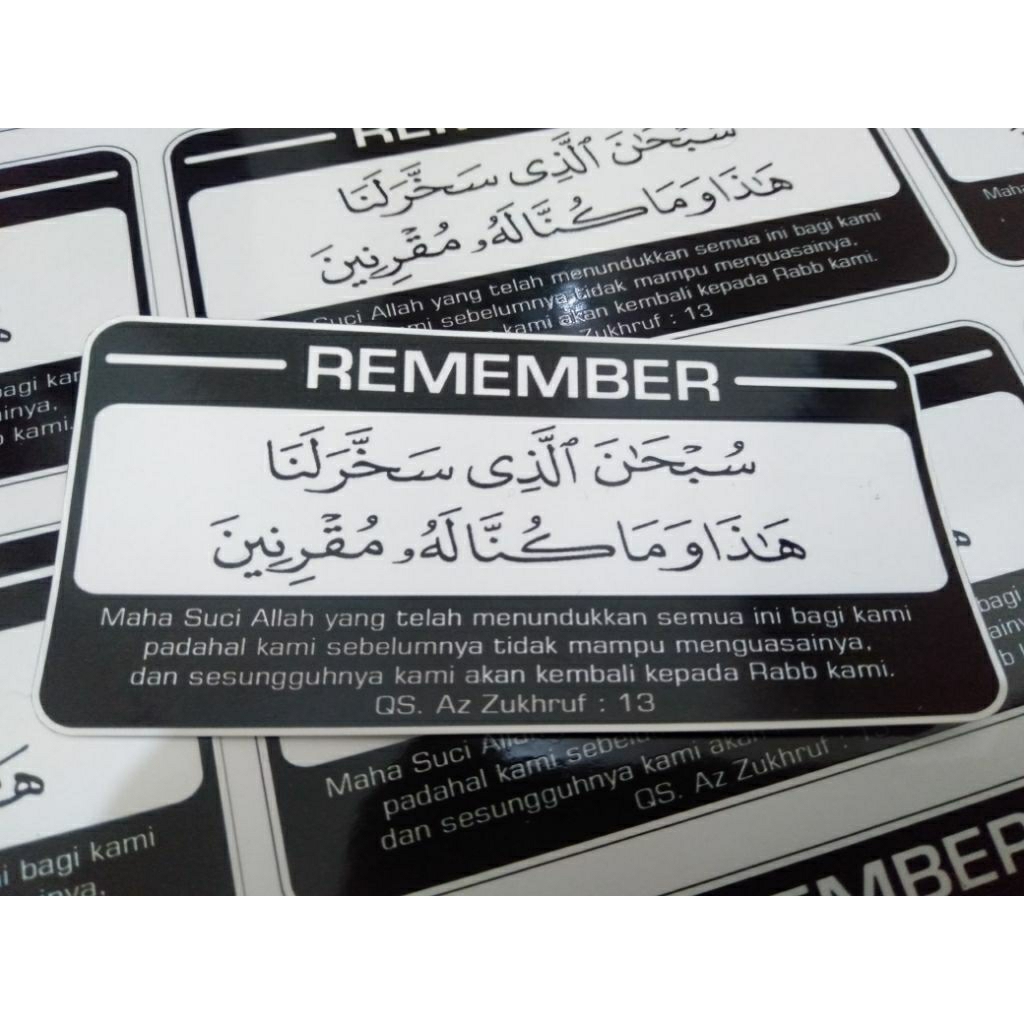 REMEMBER
سُبْحَٰنَ ٱلَّذِى سَخَّرَلَنَا
هَٰذَا وَمَا كُنَّا لَهُۥ مُقْرِنِينَ
Maha Suci Allah yang telah menundukkan semua ini bagi kami
padahal kami sebelumnya tidak mampu menguasainya,
dan sesungguhnya kami akan kembali kepada Rabb kami.
QS. Az Zukhruf : 13
سُبْحَٰنَ ٱلَّذِى سَخَّرَلَنَا
هَٰذَا وَمَا كُنَّا لَهُۥ مُقْرِنِينَ
Allah yang telah menundukkan semua ini bagi kami
sebelumnya tidak mampu menguasainya,
kami akan kembali kepada Rabb kami.
Zukhruf : 13
Maha Suci
padahal kami
dan sesungguhnya kami
QS. Az Zukhruf :
bagi kami